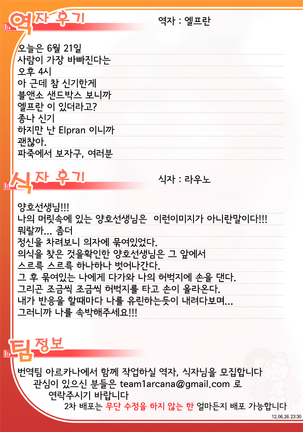 역자 후기
역자 : 엘프란
오늘은 6월 21일
사람이 가장 바빠진다는
오후 4시
아 근데 참 신기한게
불앤소 샌드박스 보니까
엘프란 이 있더라고?
종나 신기
하지만 난 Elpran 이니까
괜찮아.
파죽에서 보자구, 여러분
식자 후기
식자 : 라우노
양호선생님!!!
나의 머릿속에 있는 양호선생님은 이런이미지가 아니란말이다!!!
뭐랄까... 좀더
정신을 차려보니 의자에 묶여있었다.
의식을 찾은 것을확인한 양호선생님은 그 앞에서
스르륵 스르륵 하나하나 벗어나간다.
그 후 묶여있는 나에게 다가와 나의 허벅지에 손을 댄다.
그리곤 조금씩 조금씩 허벅지를 타고 손이 올라온다.
내가 반응을 할때마다 나를 유린하는듯이 내려다보며...
그러니까 나를 속박해주세요!!!
팀 정보
번역팀 아르카나에서 함께 작업하실 역자, 식자님을 모집합니다
관심이 있으신 분들은 team1arcana@gmail.com 로
연락주시기 바랍니다
2차 배포는 무단 수정을 하지 않는 한 얼마든지 배포 가능합니다
12.06.26 23:30